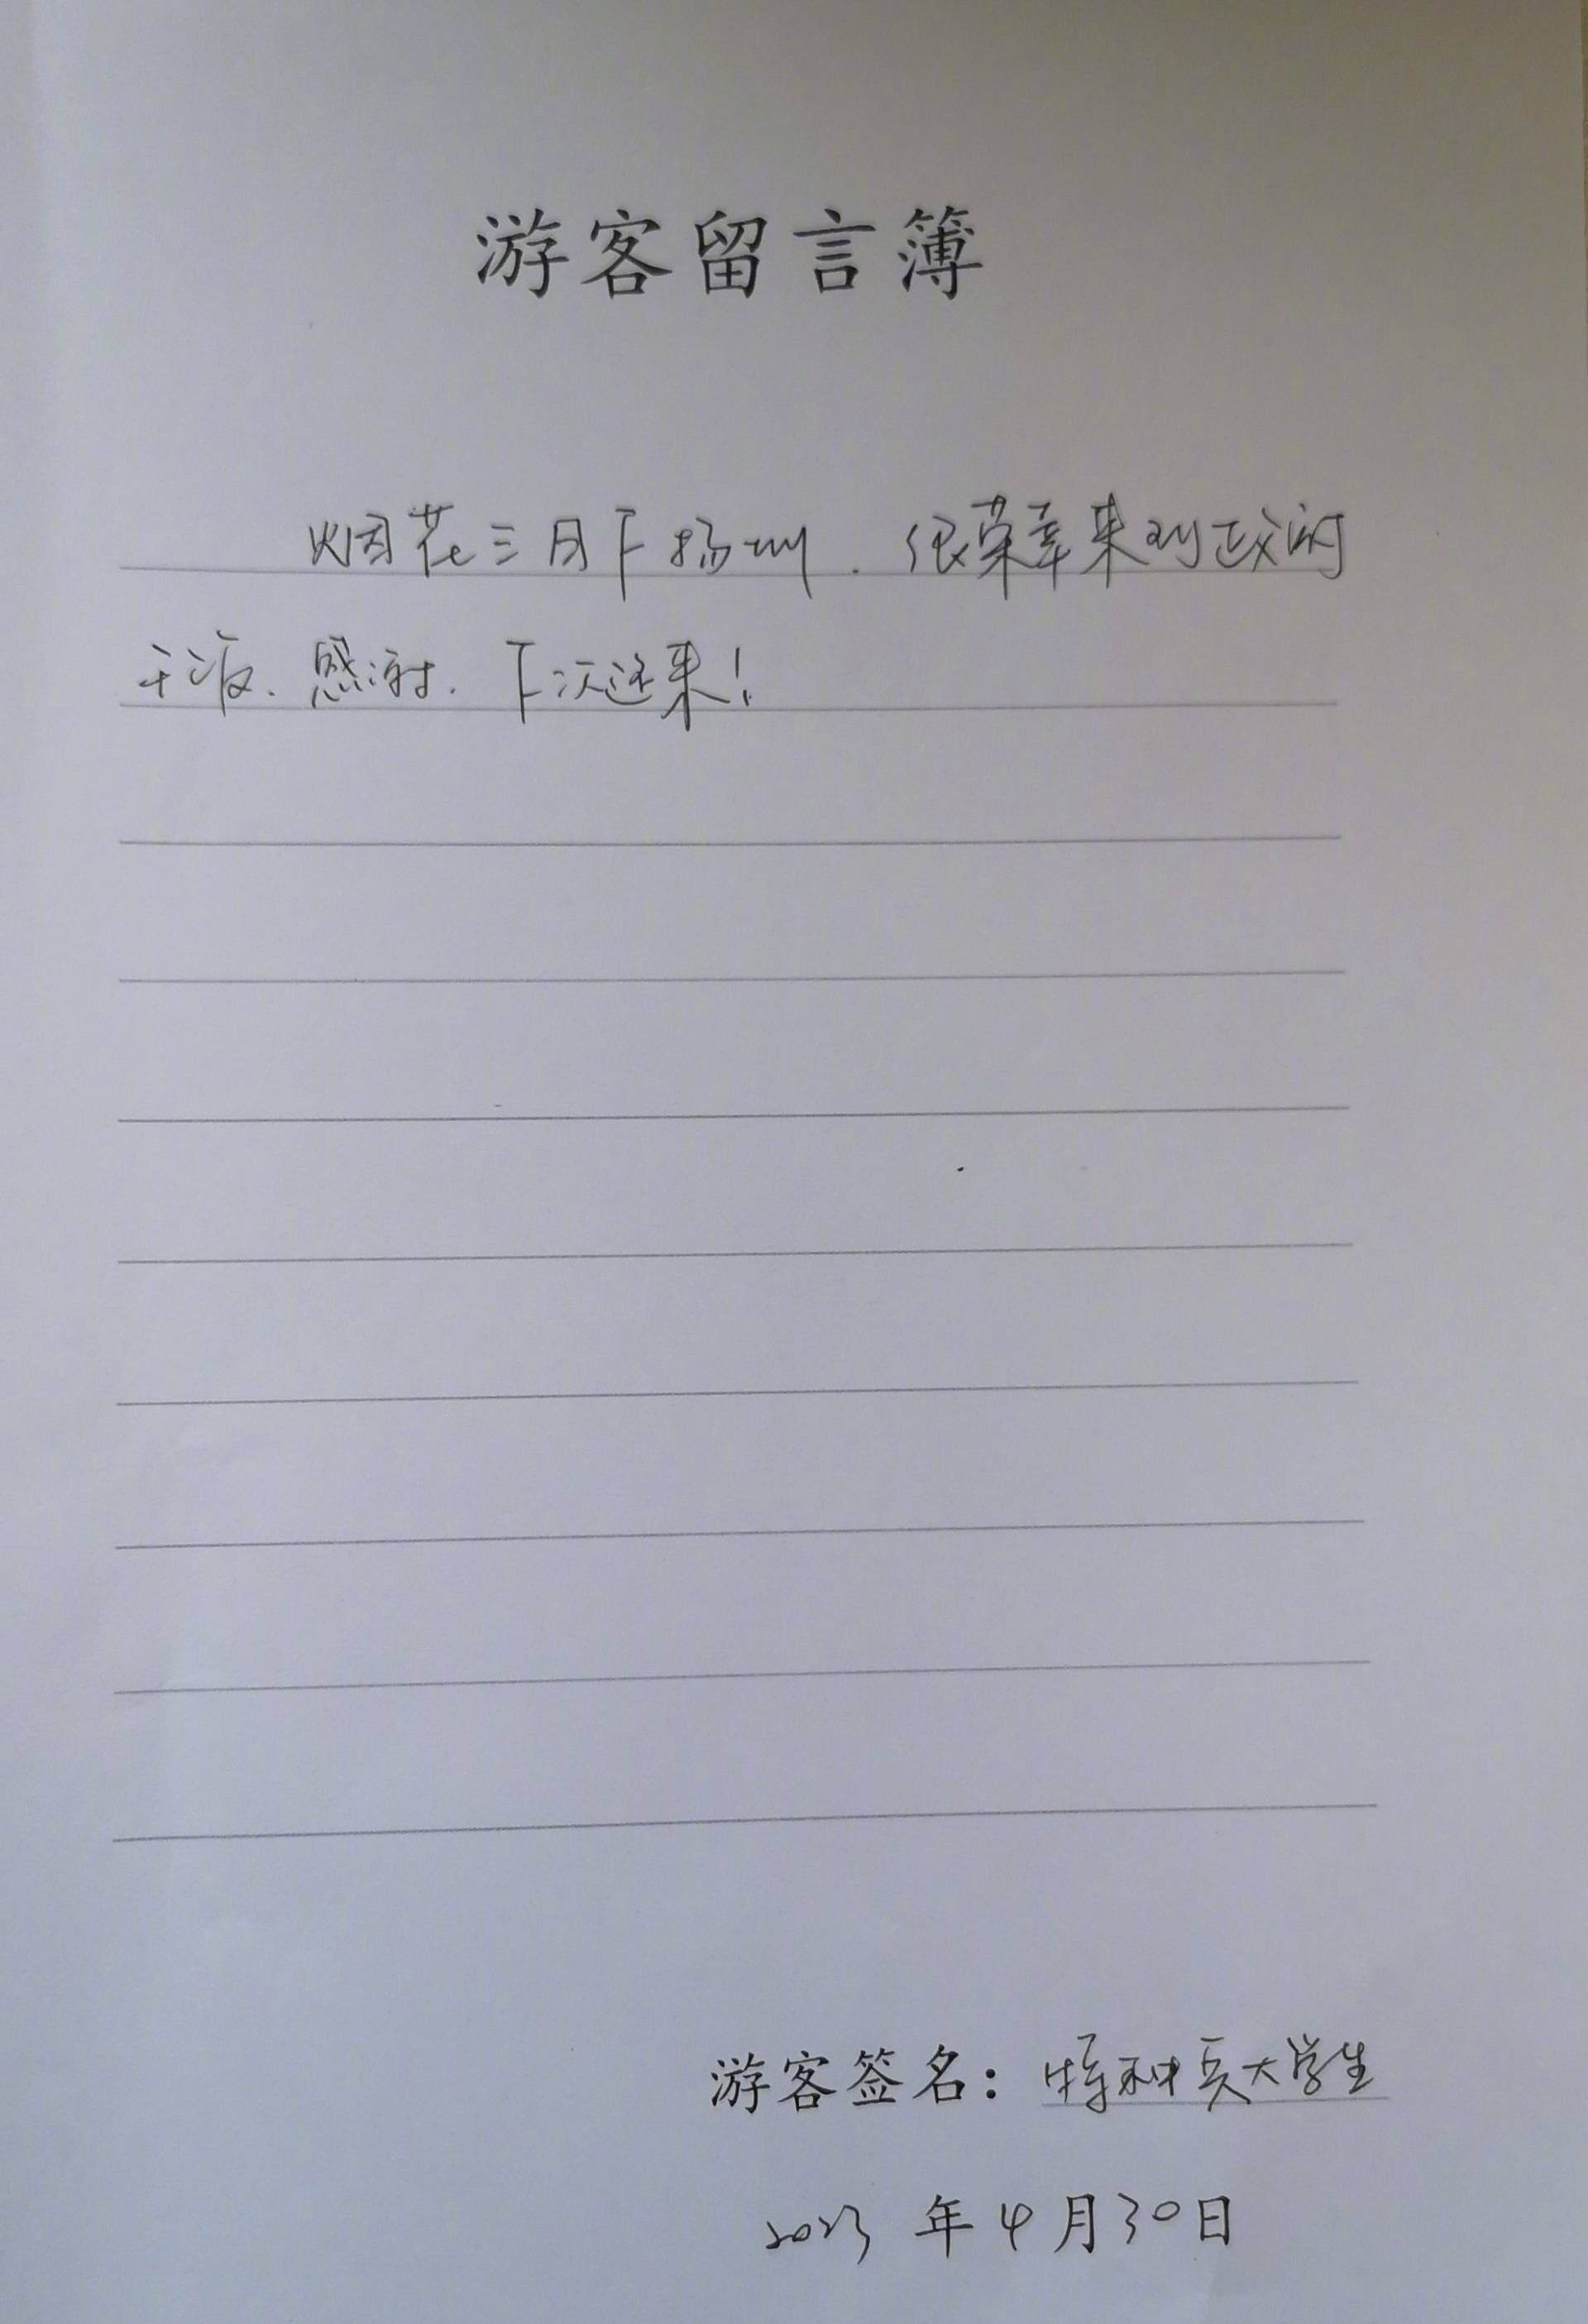 游客留言簿
烟花三月下扬州.很荣幸来到政府
干饭.感谢.下次还来!
游客签名:特种兵大学生
2023年4月30日